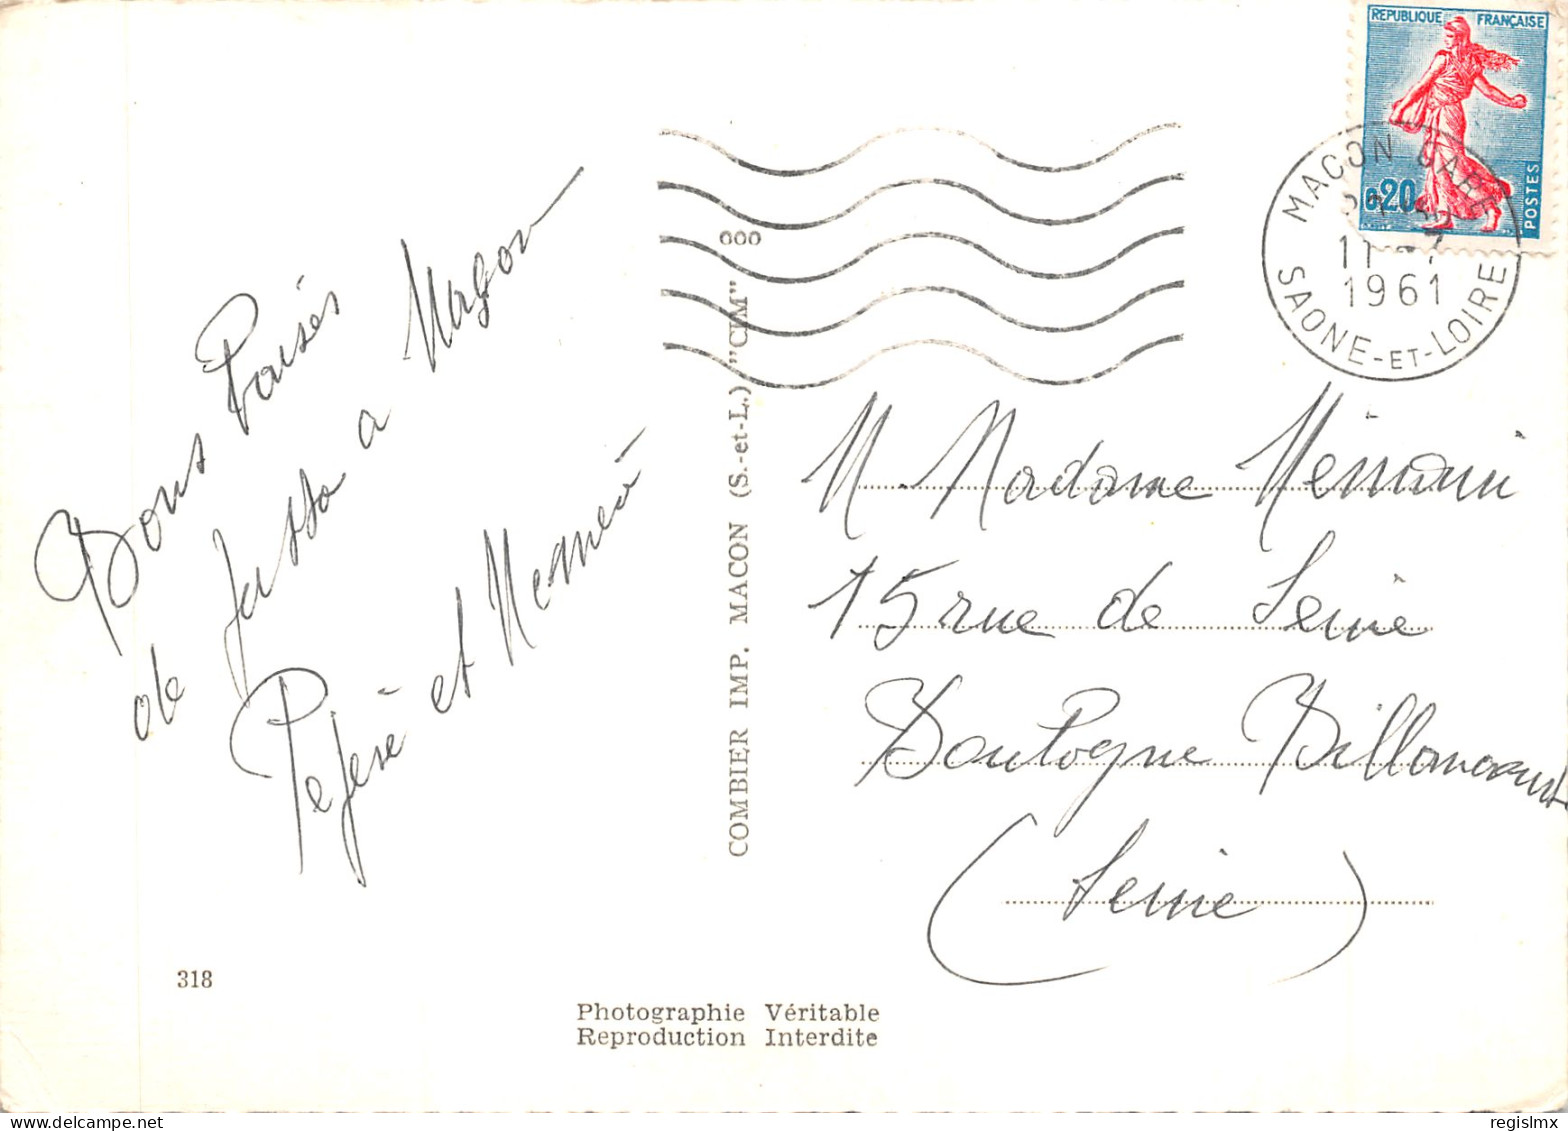 Bons Baisés
de passage a Macon
Pépère et Mémère
318
Photographie Véritable
Reproduction Interdite
COMBIER IMP. MACON (S.-et-L.) "CIM"
000
REPUBLIQUE FRANÇAISE
0,20
POSTES
MACON GARE
11
1961
SAONE-ET-LOIRE
M Madame
15 rue de Seine
Boulogne Billancourt
(Seine)
regislmx